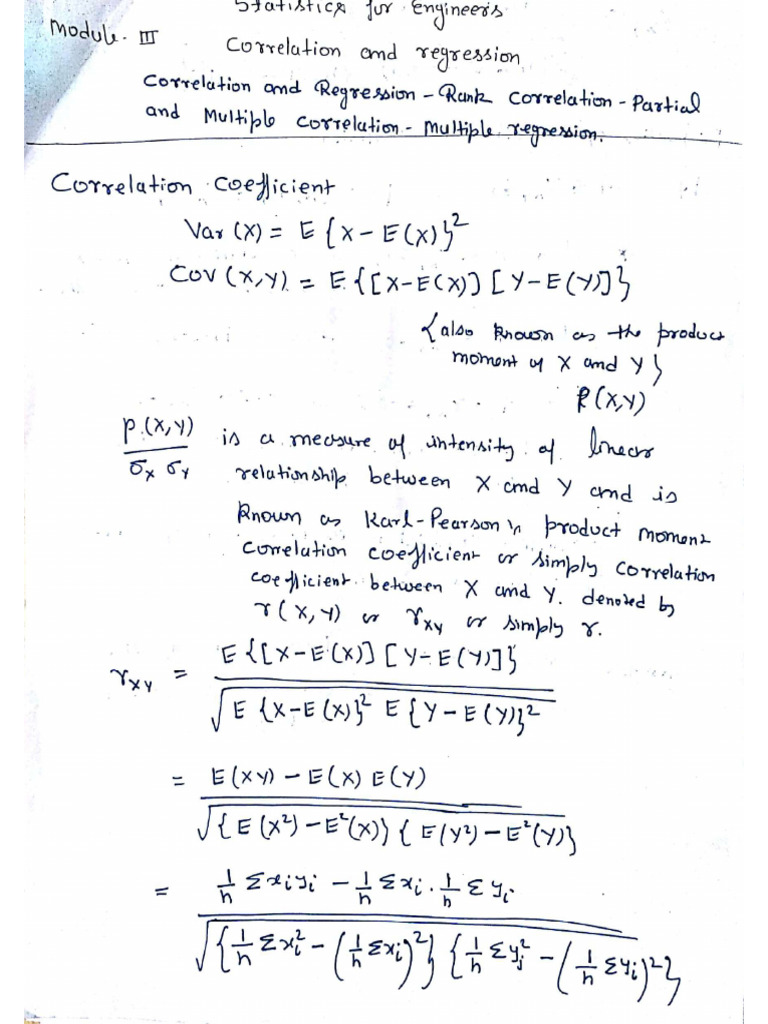 Statistics for Engineers
Module - III
Correlation and regression
Correlation and Regression - Rank Correlation - Partial
and Multiple Correlation - Multiple regression.
Correlation Coefficient
Var (X) = E {X - E(X)}²
Cov (X, Y) = E {[X - E(X)] [Y - E(Y)]}
{also known as the product
moment of X and Y}
P(X,Y)
P(X,Y) / σx σY is a measure of intensity of linear
relationship between X and Y and is
known as Karl-Pearson's product moment
correlation coefficient or simply correlation
coefficient between X and Y. denoted by
r(X, Y) or rXY or simply r.
rXY = E {[X - E(X)] [Y - E(Y)]} / √(E {X - E(X)}² E {Y - E(Y)}²)
= E(XY) - E(X) E(Y) / √({E(X²) - E²(X)} {E(Y²) - E²(Y)})
= 1/n Σxiyi - 1/n Σxi · 1/n Σyi / √({1/n Σxi² - (1/n Σxi)²} {1/n Σyj² - (1/n Σyi)²})